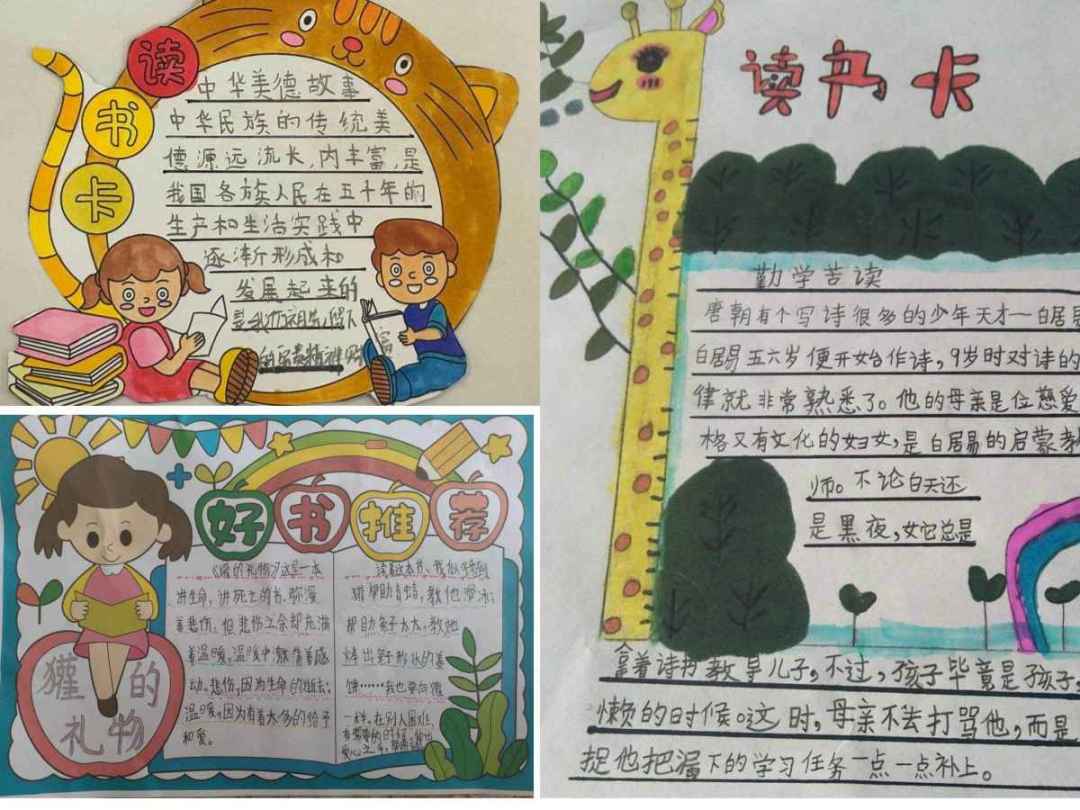 读书卡
中华美德故事
中华民族的传统美
德源远流长,内丰富,是
我国各族人民在五十年的
生产和生活实践中
逐渐形成和
发展起来的
是我们祖先留下
好书推荐
《獾的礼物》这是一本
讲生命,讲死亡的书,弥漫
着悲伤,但悲伤之余却充满
着温暖,温暖中飘着着感
动。悲伤,因为生命的逝去;
温暖,因为有着太多的给予
和爱。
读着这本书,我似乎看到
獾帮助青蛙,教他滑冰;
帮助兔子太太,教她
烤出兔子形状的姜
饼……我也要向獾
一样,在别人困难,
獾的
礼物
读书卡
勤学苦读
唐朝有个写诗很多的少年天才一白居易
白居易五六岁便开始作诗,9岁时对诗的
律就非常熟悉了。他的母亲是位慈爱
格又有文化的妇女,是白居易的启蒙老
师。不论白天还
是黑夜,她总是
拿着诗书教导儿子。不过,孩子毕竟是孩子,
懒的时候。这时,母亲不去打骂他,而是
捉他把漏下的学习任务一点一点补上。